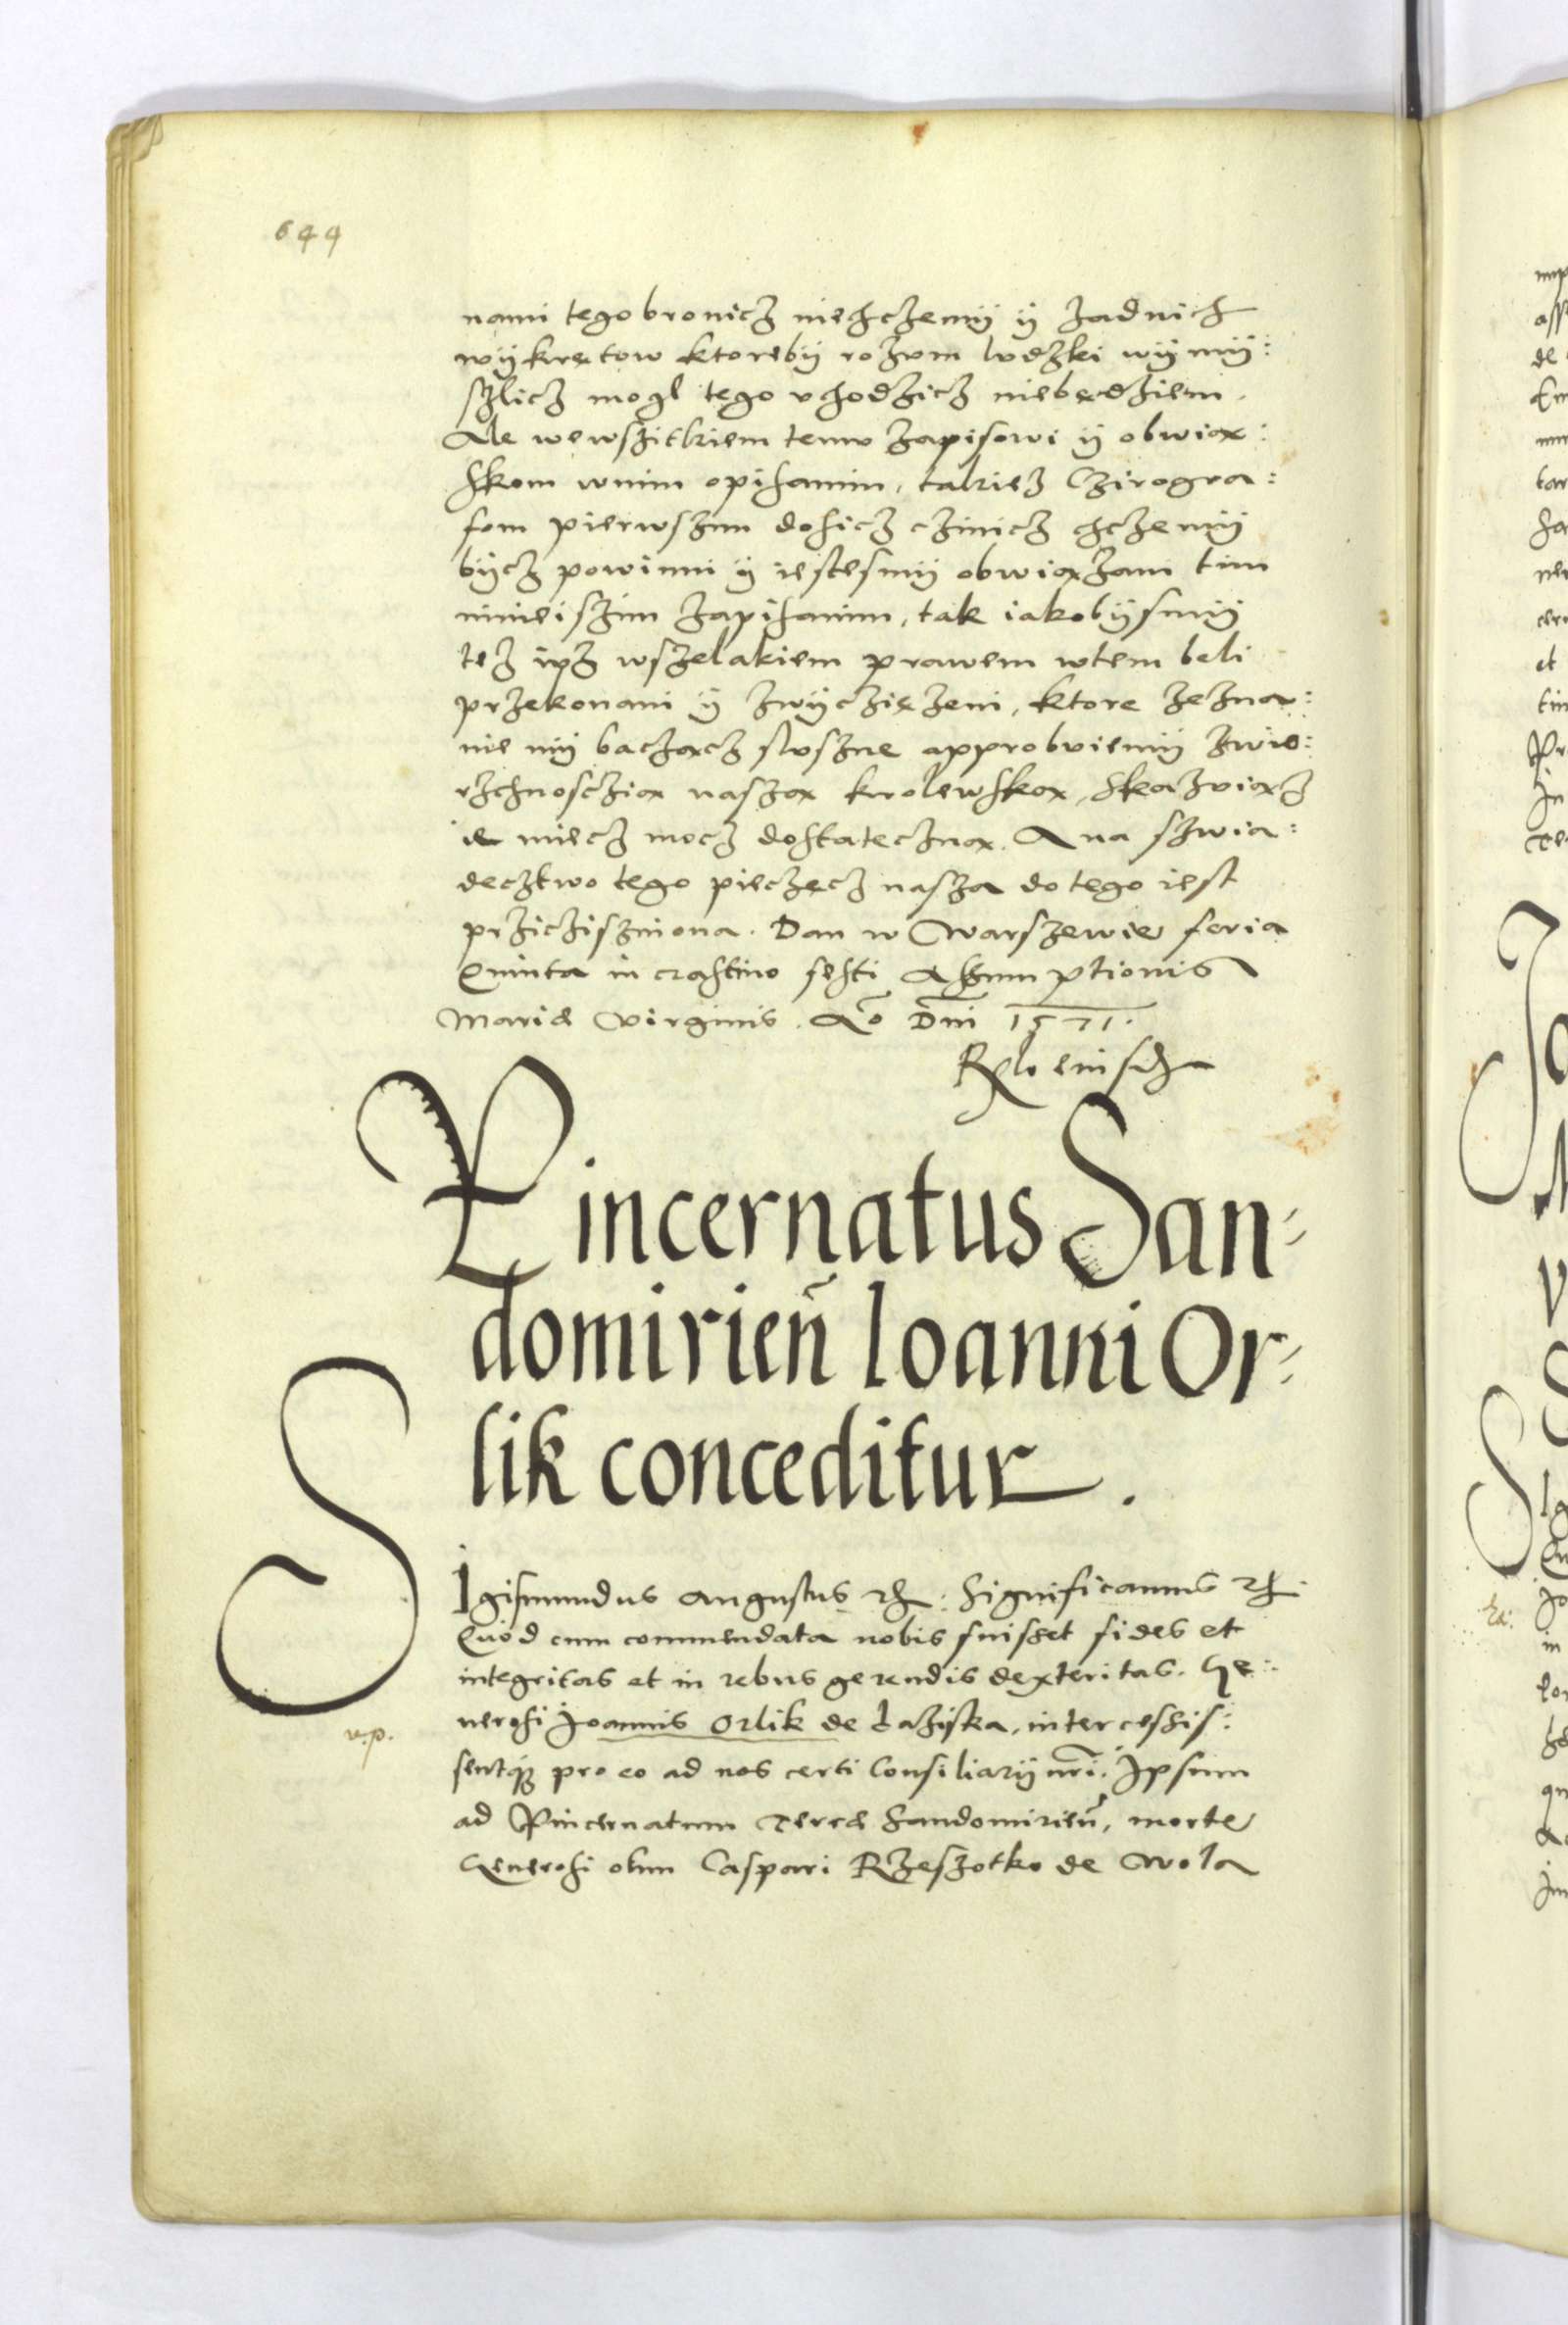 644
nami tego bronicz niechczemÿ ÿ zadnich
wÿkrętow ktorebÿ rozvm lvdzki wÿmÿ:
szlicz mogl tego vchodzicz niebędziem.
Ale wewszitkiem temv zapisowi ÿ obwiąx:
skom wnim opisanim, takiez Czirogra:
fom pierwszim dosicz czinicz chczemÿ
bÿcz powinni ÿ iestesmÿ obwiązani tim
ninieiszim zapisanim, tak iakobÿsmÿ
tez ipz wszelakiem prawem wtem beli
przekonani ÿ zwÿcziężeni, ktore zezna:
nie mÿ baczącz slvszne approbviemÿ zwie:
rzchnosczią naszą krolewską, skazviącz
ie miecz mocz dostateczną. A na szwia:
decztwo tego pieczęcz nasza do tego iest
prziczisniona. Dan w Warszewie feria
Quinta in crastino festi Assumptionis
Mariæ Virginis. Aō Dn̄i 1571.
Pincernatus San-
domirien̄ Ioanni Or-
lik conceditur.
SIgismundus Augustus etc: Significamus etc.
Quod cum commendata nobis fuisset fides et
integritas et in rebus gerendis dexteritas. Ge:
nerosi Joannis Orlik de Łaziska, intercessis:
v.p.
sentq₃ pro eo ad nos certi Consiliarÿ nr̄i. Ipsum
ad Pincernatum Terræ Sandomirien̄, morte
Generosi olim Caspari Rzeszotko de Wola